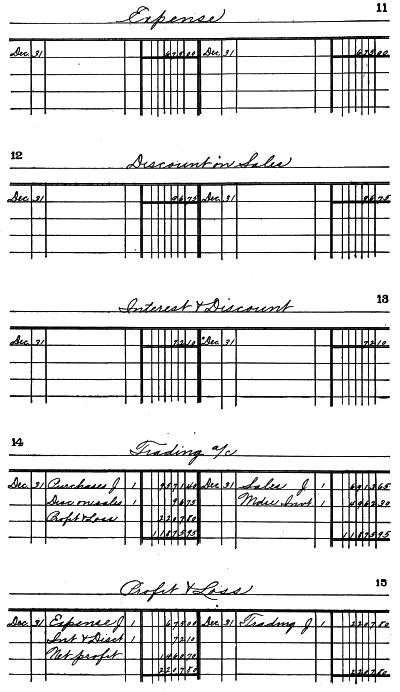 11
Expense
Dec. 31 67500 Dec. 31 67500
12
Discount on Sales
Dec. 31 9675 Dec. 31 9675
13
Interest & Discount
Dec. 31 7210 Dec. 31 7210
14
Trading a/c
Dec. 31 Purchases J 1 957140 Dec. 31 Sales J 1 691365
Disc on sales 1 9675 Mdse Invt 1 496230
Profit & Loss 220780
1187595 1187595
15
Profit & Loss
Dec. 31 Expense J 1 67500 Dec. 31 Trading J 1 220780
Int & Disct 1 7210
Net profit 146070
220780 220780